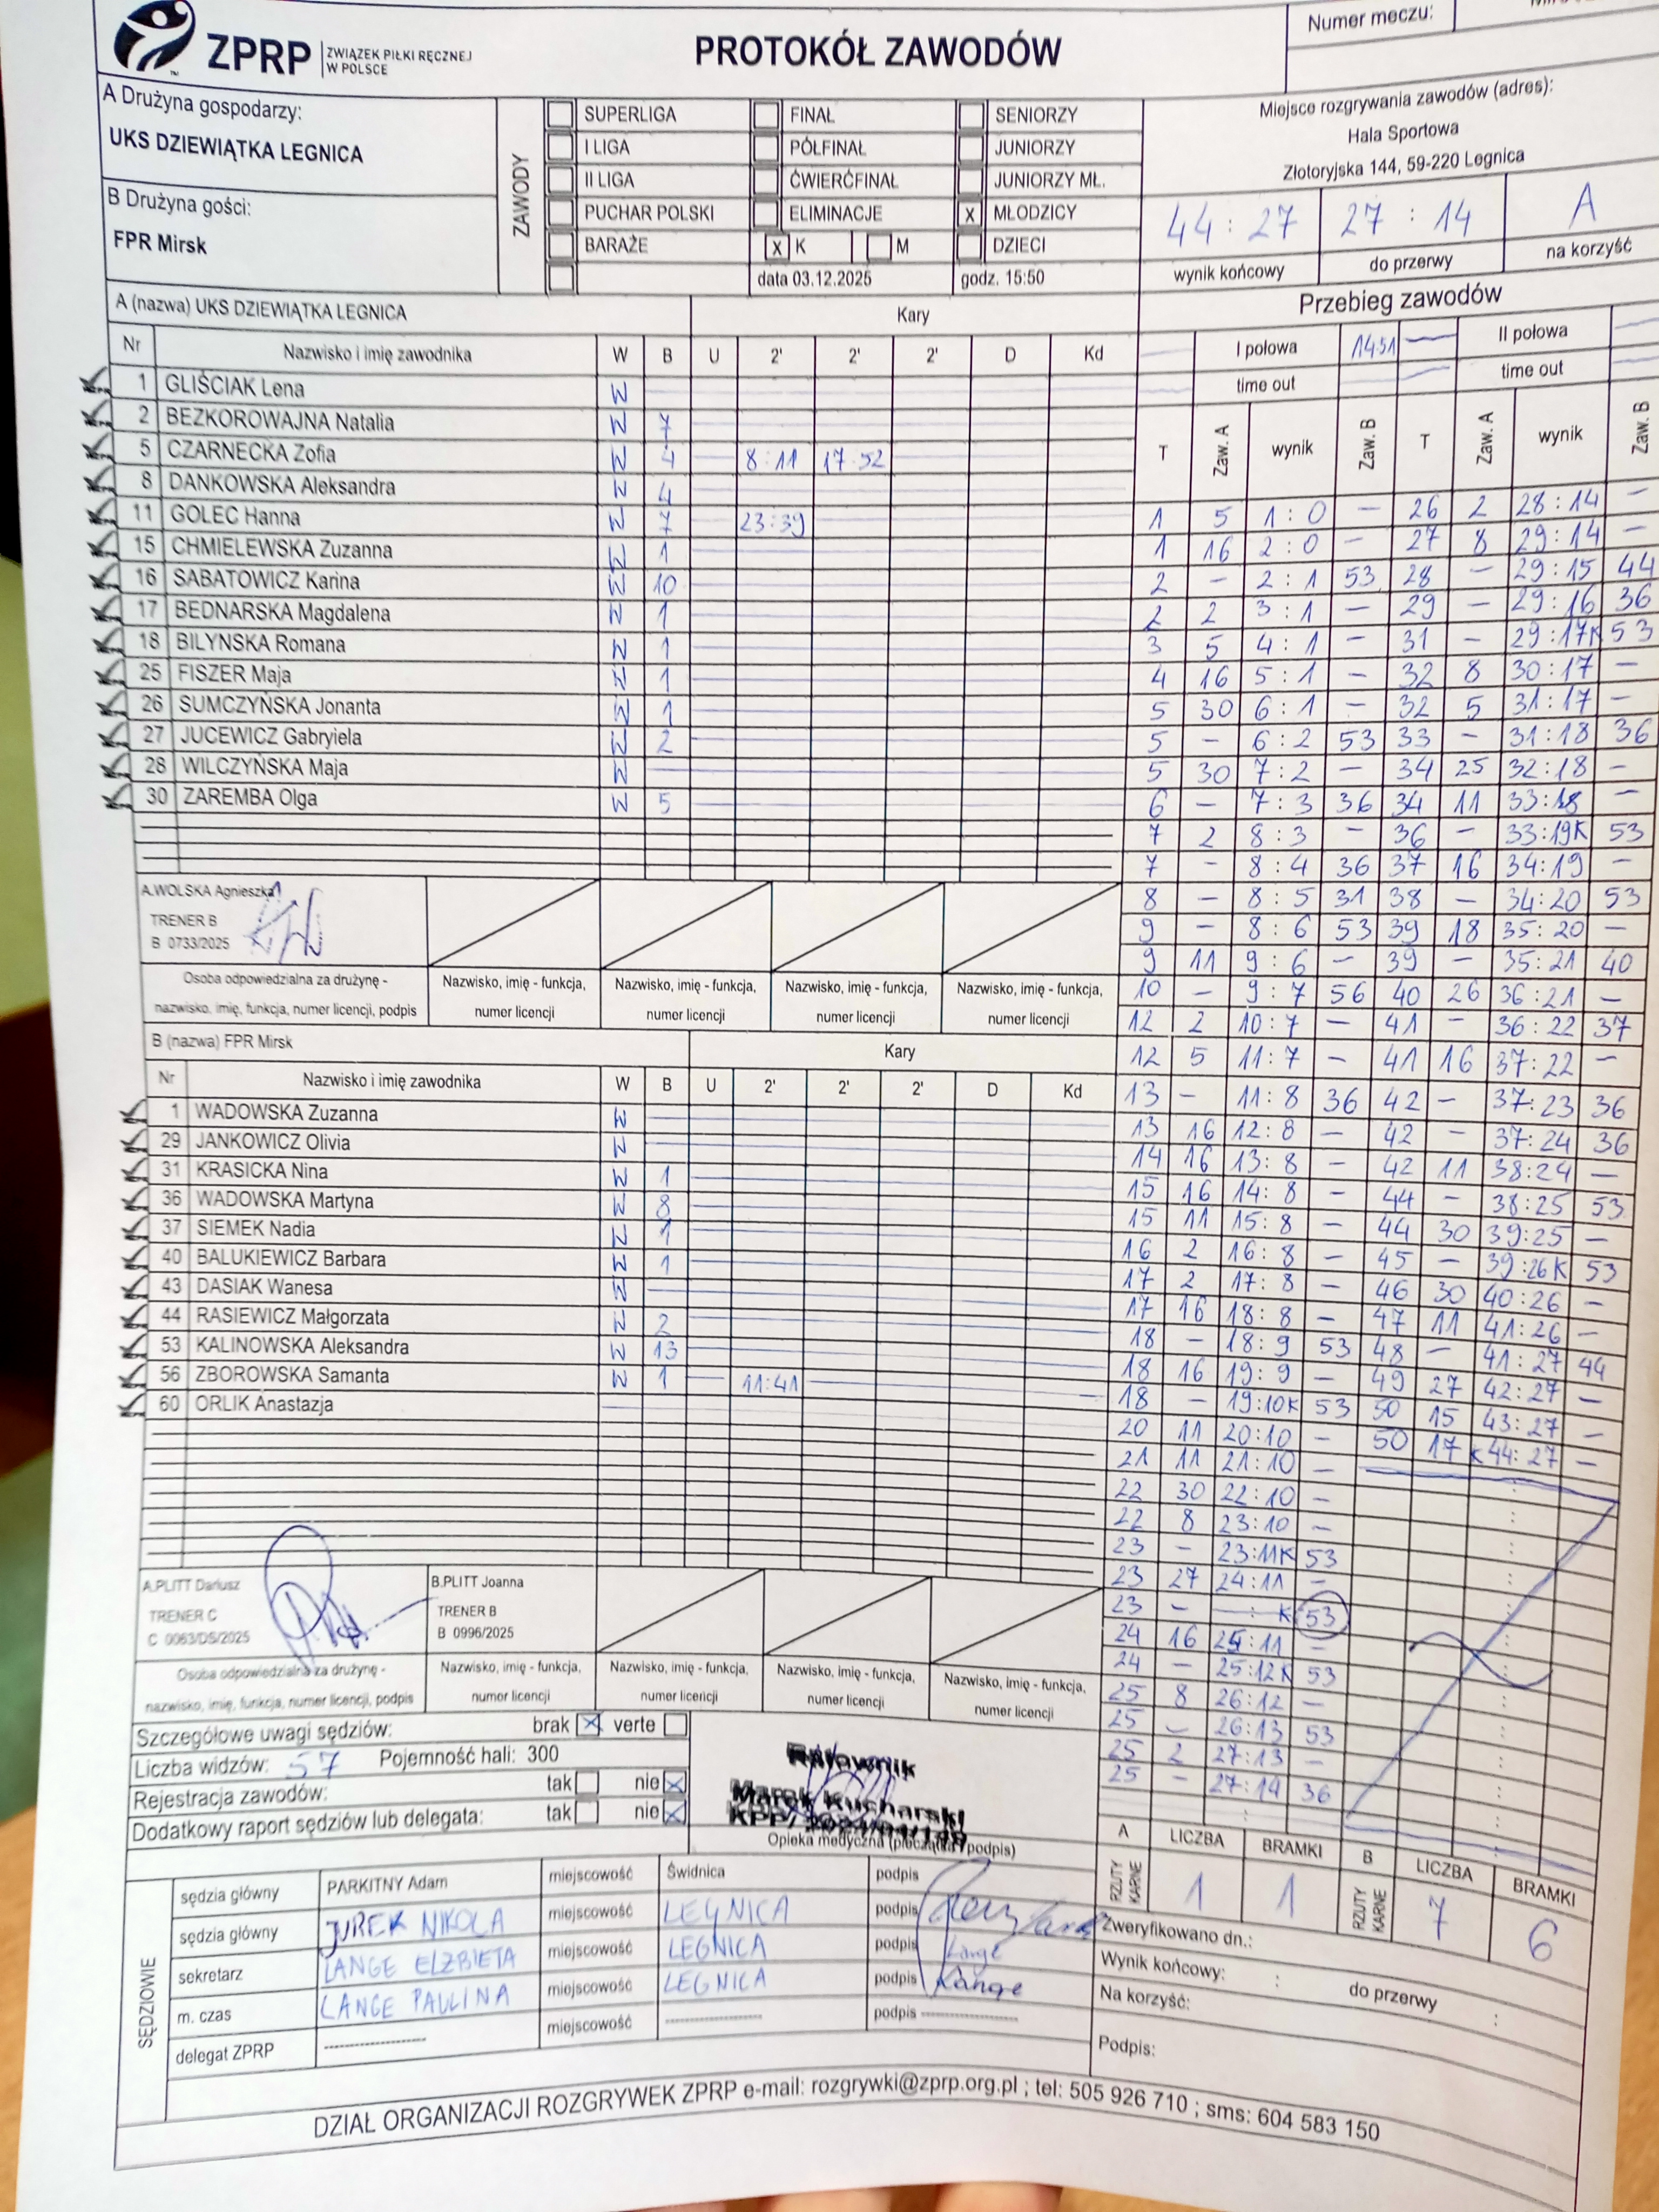 ZPRP ZWIĄZEK PIŁKI RĘCZNEJ
W POLSCE
PROTOKÓŁ ZAWODÓW
Numer meczu:
A Drużyna gospodarzy:
UKS DZIEWIĄTKA LEGNICA
B Drużyna gości:
FPR Mirsk
ZAWODY
SUPERLIGA FINAŁ SENIORZY
I LIGA PÓŁFINAŁ JUNIORZY
II LIGA ĆWIERĆFINAŁ JUNIORZY MŁ.
PUCHAR POLSKI ELIMINACJE X MŁODZICY
BARAŻE X K M DZIECI
data 03.12.2025 godz. 15:50
Miejsce rozgrywania zawodów (adres):
Hala Sportowa
Złotoryjska 144, 59-220 Legnica
44:27 27:14 A
wynik końcowy do przerwy na korzyść
A (nazwa) UKS DZIEWIĄTKA LEGNICA Kary
Nr Nazwisko i imię zawodnika W B U 2' 2' 2' D Kd
1 GLIŚCIAK Lena W
2 BEZKOROWAJNA Natalia W 7
5 CZARNECKA Zofia W 4 8:11 17:52
8 DANKOWSKA Aleksandra W 4
11 GOLEC Hanna W 7 23:39
15 CHMIELEWSKA Zuzanna W 1
16 SABATOWICZ Karina W 10
17 BEDNARSKA Magdalena W 1
18 BILYNSKA Romana W 1
25 FISZER Maja W 1
26 SUMCZYŃSKA Jonanta W 1
27 JUCEWICZ Gabryiela W 2
28 WILCZYŃSKA Maja W
30 ZAREMBA Olga W 5
A.WOLSKA Agnieszka
TRENER B
B 0733/2025
Osoba odpowiedzialna za drużynę -
nazwisko, imię, funkcja, numer licencji, podpis
Nazwisko, imię - funkcja,
numer licencji
Nazwisko, imię - funkcja,
numer licencji
Nazwisko, imię - funkcja,
numer licencji
Nazwisko, imię - funkcja,
numer licencji
B (nazwa) FPR Mirsk Kary
Nr Nazwisko i imię zawodnika W B U 2' 2' 2' D Kd
1 WADOWSKA Zuzanna W
29 JANKOWICZ Olivia W
31 KRASICKA Nina W 1
36 WADOWSKA Martyna W 8
37 SIEMEK Nadia W 1
40 BALUKIEWICZ Barbara W 1
43 DASIAK Wanesa W
44 RASIEWICZ Małgorzata W 2
53 KALINOWSKA Aleksandra W 13
56 ZBOROWSKA Samanta W 1 11:41
60 ORLIK Anastazja
A.PLITT Dariusz
TRENER C
C 0063/DS/2025
B.PLITT Joanna
TRENER B
B 0996/2025
Osoba odpowiedzialna za drużynę -
nazwisko, imię, funkcja, numer licencji, podpis
Nazwisko, imię - funkcja,
numer licencji
Nazwisko, imię - funkcja,
numer licencji
Nazwisko, imię - funkcja,
numer licencji
Nazwisko, imię - funkcja,
numer licencji
Szczegółowe uwagi sędziów: brak X verte
Liczba widzów: 57 Pojemność hali: 300
Rejestracja zawodów: tak nie X
Dodatkowy raport sędziów lub delegata: tak nie X
Ratownik
Marek Kucharski
Opieka medyczna (pieczątka i podpis)
SĘDZIOWIE
sędzia główny PARKITNY Adam miejscowość Świdnica podpis
sędzia główny JUREK NIKOLA miejscowość LEGNICA podpis
sekretarz LANGE ELŻBIETA miejscowość LEGNICA podpis Lange
m. czas LANGE PAULINA miejscowość LEGNICA podpis Lange
delegat ZPRP ---------- miejscowość ---------- podpis ----------
Przebieg zawodów
I połowa 14:51 II połowa
time out time out
T Zaw. A wynik Zaw. B T Zaw. A wynik Zaw. B
1 5 1:0 – 26 2 28:14 –
1 16 2:0 – 27 8 29:14 –
2 – 2:1 53 28 – 29:15 44
2 2 3:1 – 29 – 29:16 36
3 5 4:1 – 31 – 29:17K 53
4 16 5:1 – 32 8 30:17 –
5 30 6:1 – 32 5 31:17 –
5 – 6:2 53 33 – 31:18 36
5 30 7:2 – 34 25 32:18 –
6 – 7:3 36 34 11 33:18 –
7 2 8:3 – 36 – 33:19K 53
7 – 8:4 36 37 16 34:19 –
8 – 8:5 31 38 – 34:20 53
9 – 8:6 53 39 18 35:20 –
9 11 9:6 – 39 – 35:21 40
10 – 9:7 56 40 26 36:21 –
12 2 10:7 – 41 – 36:22 37
12 5 11:7 – 41 16 37:22 –
13 – 11:8 36 42 – 37:23 36
13 16 12:8 – 42 – 37:24 36
14 16 13:8 – 42 11 38:24 –
15 16 14:8 – 44 – 38:25 53
15 11 15:8 – 44 30 39:25 –
16 2 16:8 – 45 – 39:26K 53
17 2 17:8 – 46 30 40:26 –
17 16 18:8 – 47 11 41:26 –
18 – 18:9 53 48 – 41:27 44
18 16 19:9 – 49 27 42:27 –
18 – 19:10K 53 50 15 43:27 –
20 11 20:10 – 50 17 K44:27 –
21 11 21:10 –
22 30 22:10 –
22 8 23:10 –
23 – 23:11K 53
23 27 24:11 –
23 – – : K 53
24 16 25:11 –
24 – 25:12K 53
25 8 26:12 –
25 – 26:13 53
25 2 27:13 –
25 – 27:14 36
A LICZBA BRAMKI B LICZBA BRAMKI
RZUTY KARNE 1 1 RZUTY KARNE 7 6
Zweryfikowano dn.:
Wynik końcowy: : do przerwy :
Na korzyść:
Podpis:
DZIAŁ ORGANIZACJI ROZGRYWEK ZPRP e-mail: rozgrywki@zprp.org.pl ; tel: 505 926 710 ; sms: 604 583 150